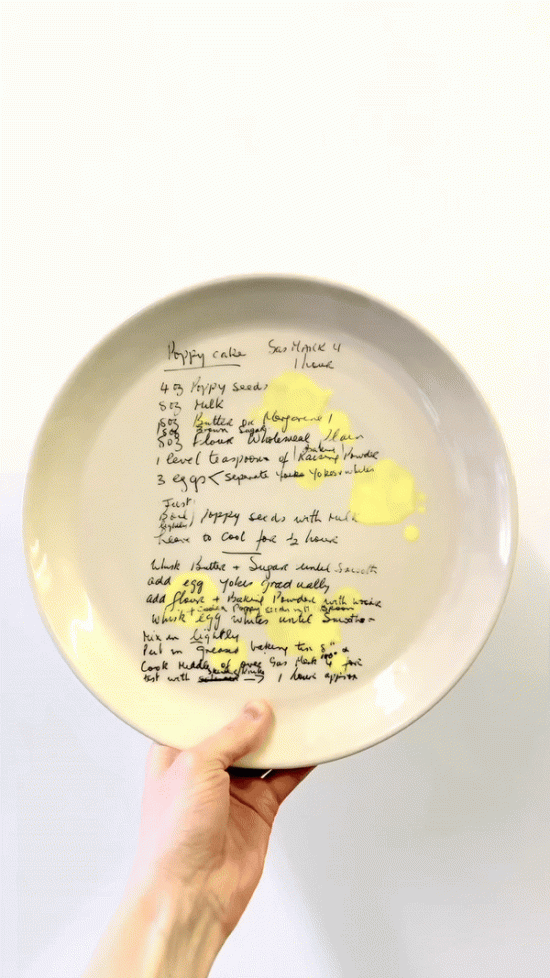 Poppy cake Gas MARK 4
1 hour
4 oz Poppy seeds
8 oz Milk
8 oz Butter or Margerine
8 oz Brown Sugar
8 oz Flour Wholemeal Plain
1 level teaspoon of Raising Powder
3 eggs < separate yokes + whites
Just
Boil Poppy seeds with Milk
leave to Cool for ½ hour
Whisk Butter + Sugar until Smooth
add egg yokes gradually
add flour + Baking Powder with
+ Poppy seeds with Spoon
Whisk egg whites until Smooth
Mix in lightly
Put in greased baking tin 8"
Cook Middle of oven Gas Mark 4 for
test with → 1 hour approx